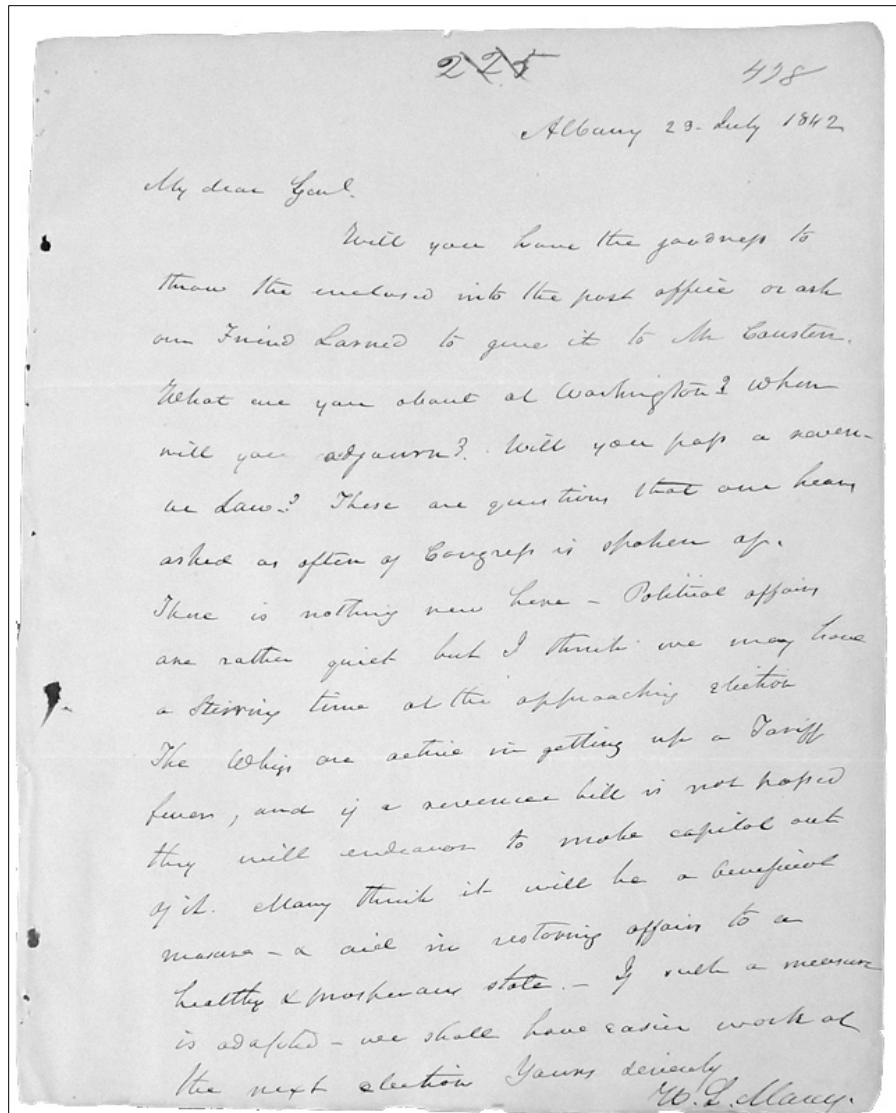 225
428
Albany 23. July 1842
My dear Genl.
Will you have the goodness to
throw the enclosed into the post office or ask
our Friend Larned to give it to Mr Causten.
What are you about at Washington? When
will you adjourn? Will you pass a reven-
ue Law? These are questions that one hears
asked as often as Congress is spoken of.
There is nothing new here – Political affairs
are rather quiet but I think we may have
a Stirring time at the approaching election
The Whigs are active in getting up a Tariff
fever, and if a revenue bill is not passed
they will endeavor to make capital out
of it. Many think it will be a beneficial
measure – & aid in restoring affairs to a
healthy & prosperous state. – If such a measure
is adopted – we shall have easier work at
the next election Yours sincerely
W. L. Marcy.